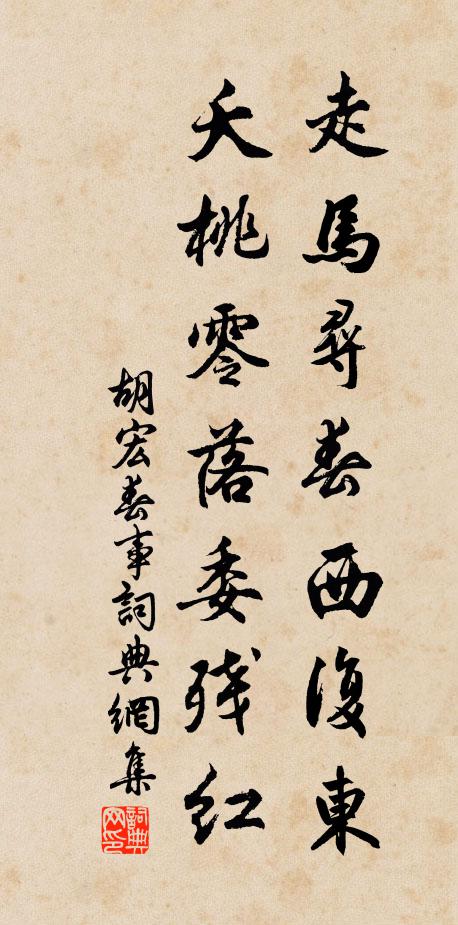 走馬尋春西復東
夭桃零落委残红
胡宏春事詞典網集
詞典網印